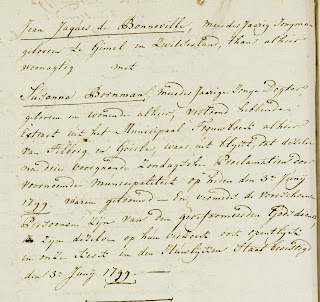 Jean Jaques de Bonneville, meerderjaarig Jongman
geboren te Gimel in Zwitzerland, thans alhier
woonagtig met
Susanna Bornman, meerderjaarige Jonge Dogter,
geboren en wonende alhier, vertoond hebbende
Extract uit het Municipaal Trouwboek alhier
van Tilburg en Goirle, waar uit blijkt, dat dezelve
na drie voorgaande Zondagsche Proclamatien door
voornoemde municipaliteit op heden den 3e Junij
1799. waren getrouwd — En vermids de voorschreve
Persoonen zijn van den gereformeerden Godsdienst,
zijn dezelve op hun verzoek ook openlijk
in onze Kerk in den Huwlijken Staat bevestigd
den 3e Junij 1799. —